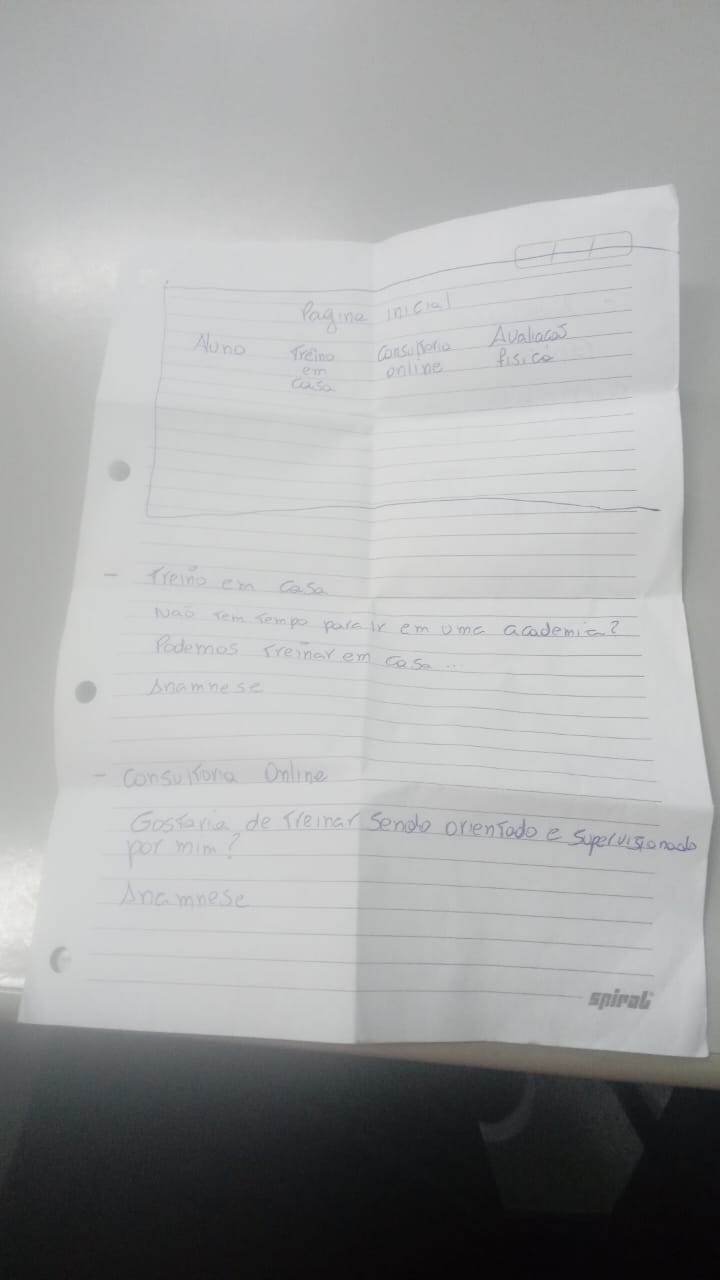 Pagina inicial
Nuno Treino em casa Consultoria online Avaliação física
- Treino em casa
Não tem tempo para ir em uma academia?
Podemos treinar em casa...
Anamnese
- Consultoria Online
Gostaria de treinar sendo orientado e supervisionado
por mim?
Anamnese
spiral